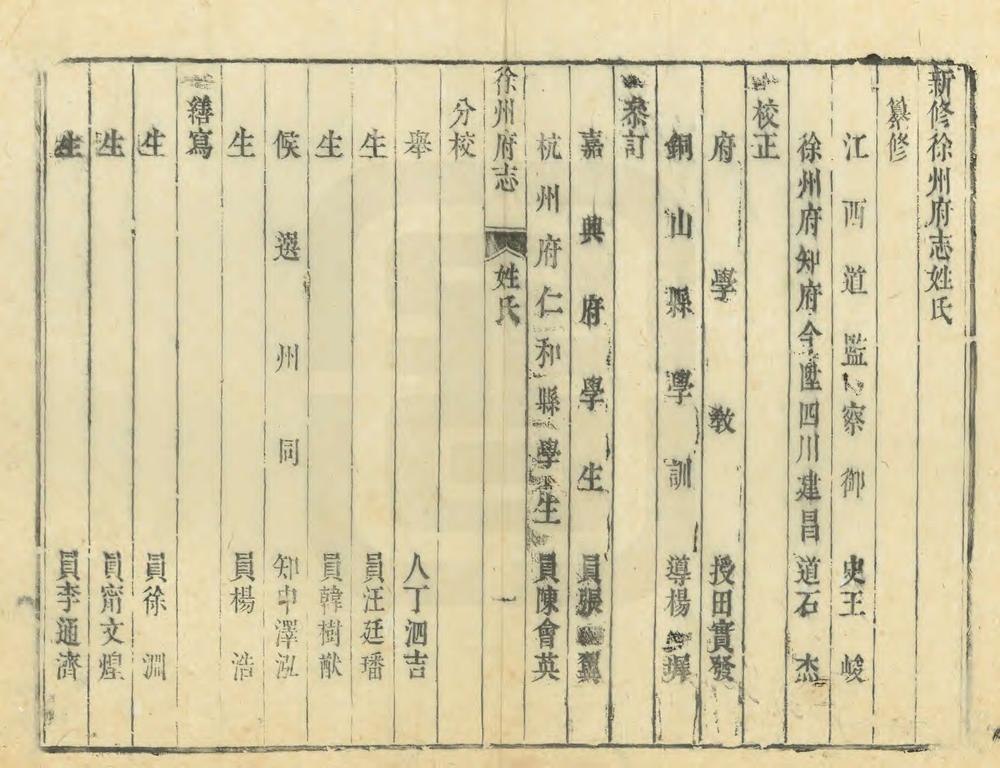 新修徐州府志姓氏
纂修
江西道監察御史王峻
徐州府知府今陞四川建昌道石杰
校正
府學教授田實發
銅山縣學訓導楊墀
叅訂
嘉興府學生員張翼
杭州府仁和縣學生員陳會英
徐州府志 姓氏 一
分校
舉人丁泗吉
生員汪廷璠
生員韓樹猷
候選州同知申澤泓
生員楊浩
繕寫
生員徐淵
生員甯文煌
生員李通濟